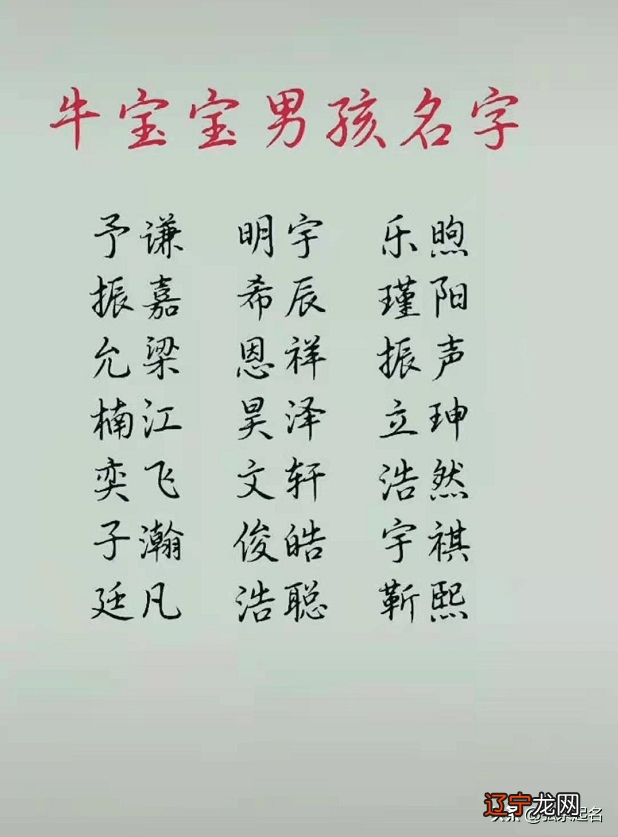 牛宝宝男孩名字
予谦 明宇 乐煦
振嘉 希辰 瑾阳
允梁 恩祥 振声
楠江 昊泽 立珅
奕飞 文轩 浩然
子瀚 俊皓 宇祺
廷凡 浩聪 靳熙
辽宁龙网